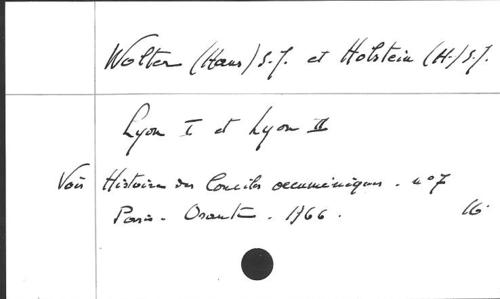 Wolter (Hans) S.J. et Holstein (H.) S.J.
Lyon I et Lyon II
Voir Histoire des Conciles oecuméniques . n° 7
Paris - Orante . 1966 . 16